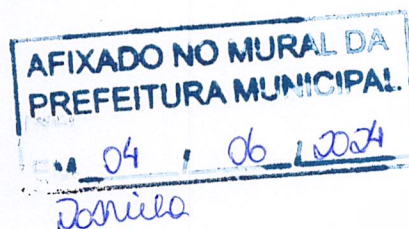 AFIXADO NO MURAL DA
PREFEITURA MUNICIPAL
04 / 06 / 2024